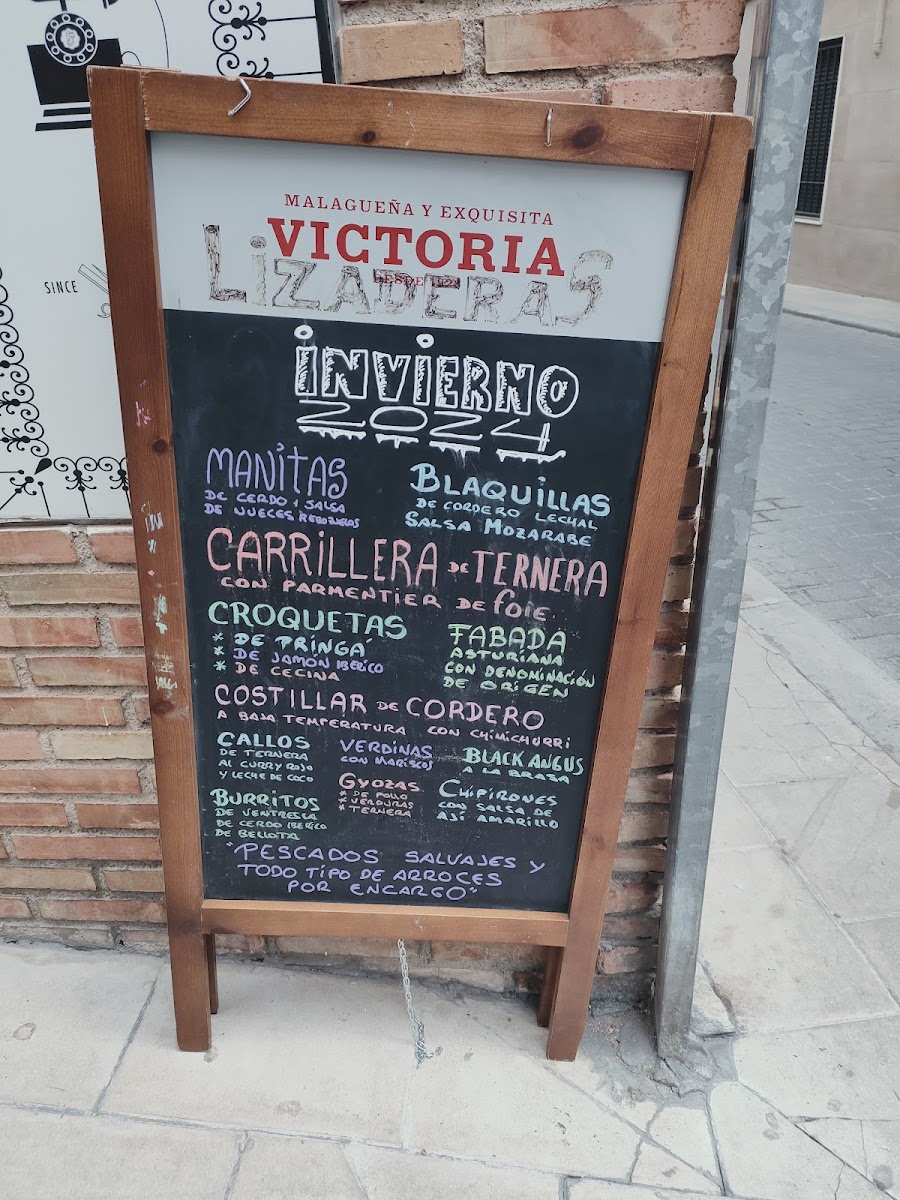 SINCE
MALAGUEÑA Y EXQUISITA
VICTORIA
LiZADERAS
iNViERNO
2024
MANiTAS
DE CERDO Y SALSA
DE NUECES
BLAQUiLLAS
DE CORDERO LECHAL
SALSA MOZARABE
CARRiLLERA DE TERNERA
CON PARMENTIER DE foie
CROQUETAS
* DE PRINGÁ
* DE JAMÓN IBERICO
* DE CECINA
FABADA
ASTURIANA
CON DENOMINACIÓN
DE ORIGEN
COSTILLAR DE CORDERO
A BAJA TEMPERATURA CON CHIMICHURRI
CALLOS
DE TERNERA
AL CURRY ROJO
Y LECHE DE COCO
VERDINAS
CON MARISCOS
BLACK ANGUS
A LA BRASA
BURRITOS
DE VENTRESCA
DE CERDO IBERICO
DE BELLOTA
GYOZAS
* DE POLLO
* VERDURAS
* TERNERA
CHIPIRONES
CON SALSA DE
AJÍ AMARILLO
"PESCADOS SALVAJES Y
TODO TIPO DE ARROCES
POR ENCARGO"